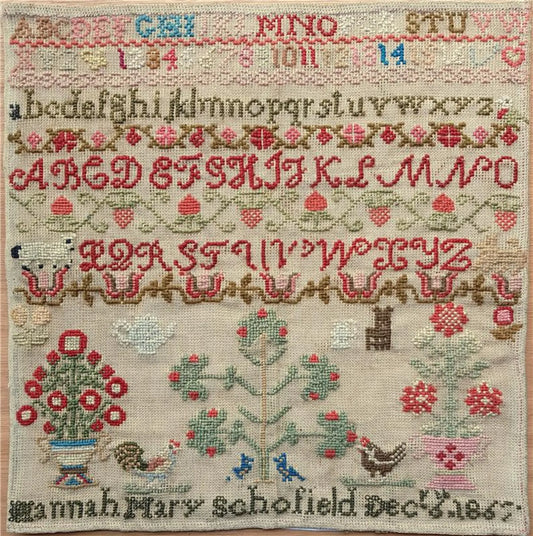 ABCDE GHI MNO STU VW
1234 9 1011 12 13 14
abcdefghijklmnopqrstuvwxyz
ABCDEFGHIJKLMNO
PQRSTUVWXYZ
Hannah Mary Schofield Dec